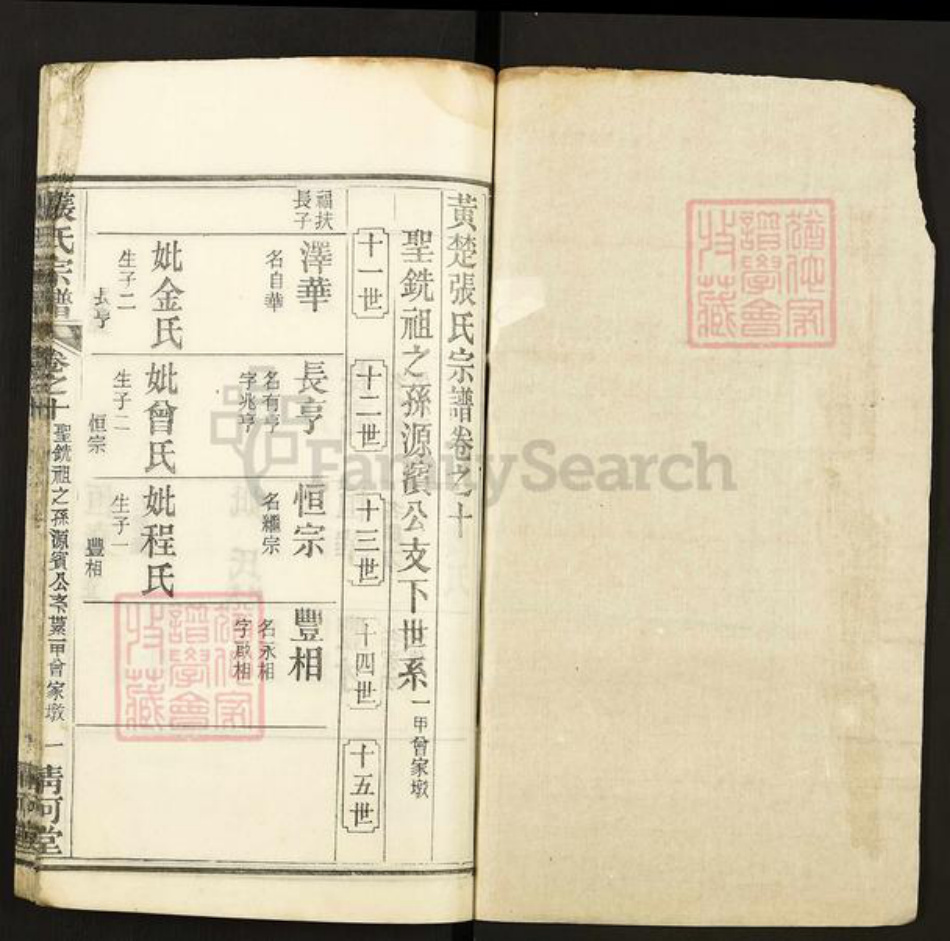 黃楚張氏宗譜卷之十
聖銑祖之孫源濱公支下世系一甲曾家墩
十一世
十二世
十三世
十四世
十五世
福扶
長子
澤華
名自華
妣金氏
生子二
長亨
長亨
名有亨
字兆亨
妣曾氏
生子二
恒宗
恒宗
名繼宗
妣程氏
生子一
豐相
豐相
名永相
字啟相
張氏宗譜
卷之十
聖銑祖之孫源賓公一甲曾家墩
一
清河堂
譜學會
收藏
譜學會
收藏
FamilySearch